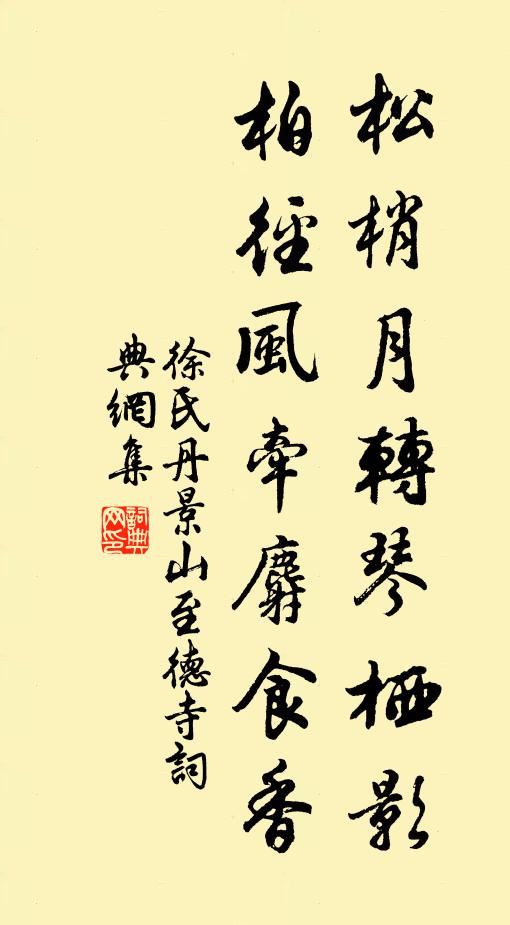 松梢月轉琴栖影
柏徑風牽麝食香
徐氏丹景山至德寺詞
典網集
詞典
网印